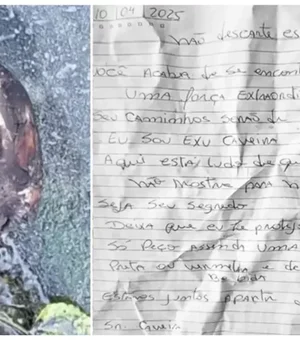 10 | 04 | 2025
Não descarte es
Você Acaba de se encont
Uma força Extraordi
Seu Caminhos Serão de
Eu Sou Exu Caveira
Aqui está tudo de que
Não mostre para n
Seja Seu Segredo
Deixa que eu te protej
Só Peço Acenda Uma
Preta ou vermelha e de
Bebida
Estamos juntos Aparti
Sr. Caveira